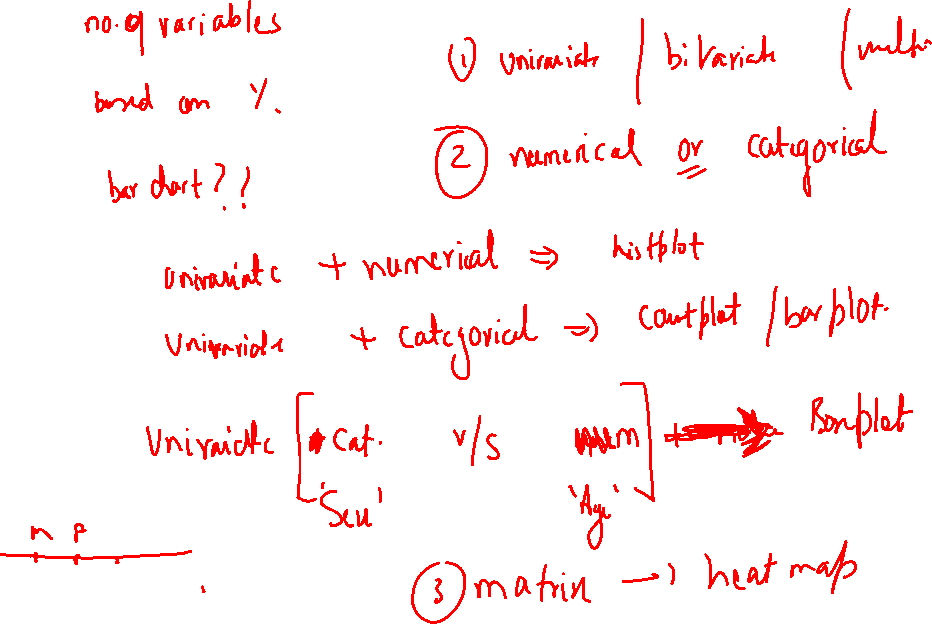 no. of variables
① univariate / bivariate / multi
based on %.
② numerical or categorical
bar chart??
univariate + numerical ⇒ histplot
Univariate + categorical ⇒ countplot / barplot.
Univariate [ Cat. v/s num ] Boxplot
'Sex' 'Age'
M F
③ matrix → heat map